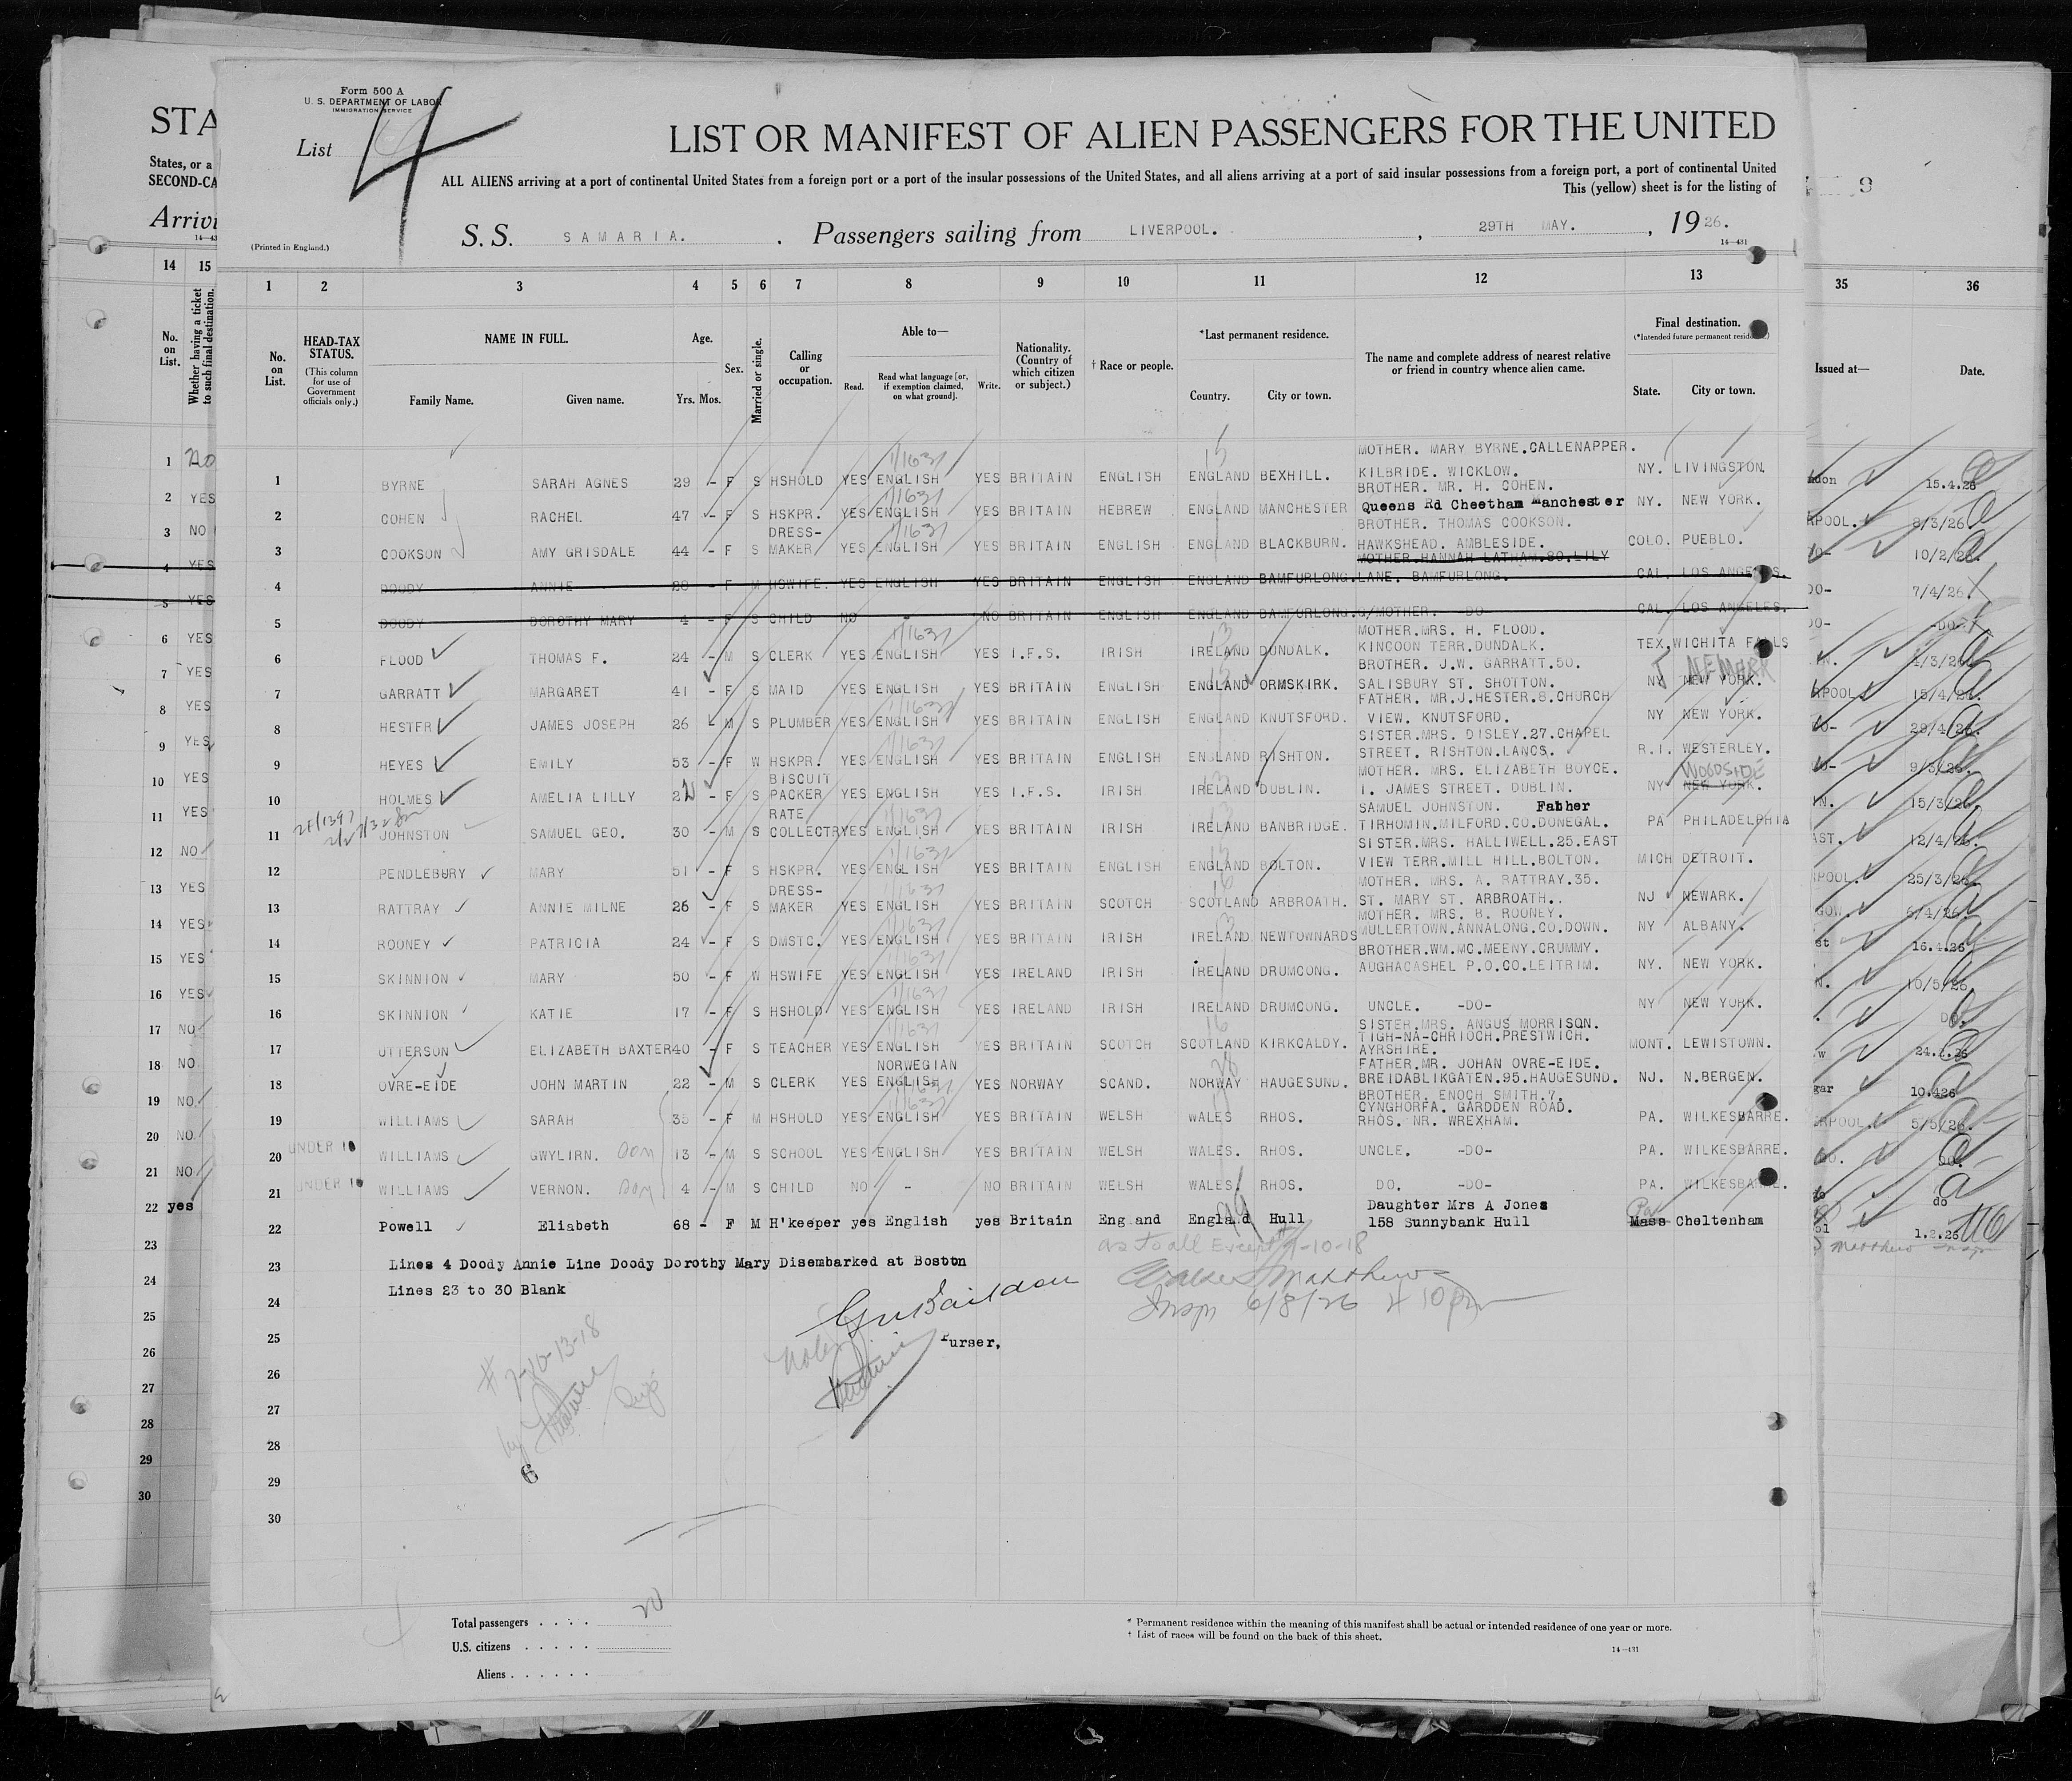 Form 500 A
U. S. DEPARTMENT OF LABOR
IMMIGRATION SERVICE
List 4
LIST OR MANIFEST OF ALIEN PASSENGERS FOR THE UNITED
ALL ALIENS arriving at a port of continental United States from a foreign port or a port of the insular possessions of the United States, and all aliens arriving at a port of said insular possessions from a foreign port, a port of continental United
This (yellow) sheet is for the listing of
(Printed in England.)
S. S. SAMARIA. , Passengers sailing from LIVERPOOL. , 29TH MAY. , 1926.
14—431
STA
States, or a
SECOND-CA
Arrivi
9
14 15
1 2 3 4 5 6 7 8 9 10 11 12 13
35 36
No. on List.
Whether having a ticket to such final destination.
No. on List.
HEAD-TAX STATUS.
(This column for use of Government officials only.)
NAME IN FULL.
Family Name. Given name.
Age.
Yrs. Mos.
Sex.
Married or single.
Calling or occupation.
Able to—
Read. Read what language [or, if exemption claimed, on what ground]. Write.
Nationality. (Country of which citizen or subject.)
† Race or people.
*Last permanent residence.
Country. City or town.
The name and complete address of nearest relative or friend in country whence alien came.
Final destination.
(*Intended future permanent residence.)
State. City or town.
Issued at— Date.
MOTHER. MARY BYRNE.CALLENAPPER.
1 BYRNE SARAH AGNES 29 - F S HSHOLD YES ENGLISH YES BRITAIN ENGLISH ENGLAND BEXHILL. KILBRIDE. WICKLOW. NY. LIVINGSTON 15.4.26
BROTHER. MR. H. COHEN.
2 COHEN RACHEL 47 - F S HSKPR. YES ENGLISH YES BRITAIN HEBREW ENGLAND MANCHESTER Queens Rd Cheetham Manchester NY. NEW YORK. 8/3/26
DRESS- BROTHER. THOMAS COOKSON.
3 COOKSON AMY GRISDALE 44 - F S MAKER YES ENGLISH YES BRITAIN ENGLISH ENGLAND BLACKBURN. HAWKSHEAD. AMBLESIDE. COLO. PUEBLO. 10/2/26
MOTHER.HANNAH LATHAM.80.LILY
4 DOODY ANNIE F M HSWIFE. YES ENGLISH YES BRITAIN ENGLISH ENGLAND BAMFURLONG. LANE. BAMFURLONG. CAL. LOS ANGELES. 7/4/26
5 DOODY DOROTHY MARY 4 - F S CHILD NO NO BRITAIN ENGLISH ENGLAND BAMFURLONG. G/MOTHER. -DO- CAL. LOS ANGELES. -DO-
MOTHER.MRS. H. FLOOD.
6 FLOOD THOMAS F. 24 - M S CLERK YES ENGLISH YES I.F.S. IRISH IRELAND DUNDALK. KINCOON TERR.DUNDALK. TEX. WICHITA FALLS 4/3/26
BROTHER. J.W. GARRATT.50. J NEWARK
7 GARRATT MARGARET 41 - F S MAID YES ENGLISH YES BRITAIN ENGLISH ENGLAND ORMSKIRK. SALISBURY ST. SHOTTON. NY NEW YORK. 15/4/26
FATHER. MR.J.HESTER.8.CHURCH
8 HESTER JAMES JOSEPH 26 - M S PLUMBER YES ENGLISH YES BRITAIN ENGLISH ENGLAND KNUTSFORD. VIEW. KNUTSFORD. NY NEW YORK. 29/4/26
SISTER.MRS. DISLEY.27.CHAPEL
9 HEYES EMILY 53 - F W HSKPR. YES ENGLISH YES BRITAIN ENGLISH ENGLAND RISHTON. STREET. RISHTON.LANCS. R.I. WESTERLEY. 9/3/26.
BISCUIT MOTHER. MRS. ELIZABETH BOYCE. WOODSIDE
10 HOLMES AMELIA LILLY 22 - F S PACKER YES ENGLISH YES I.F.S. IRISH IRELAND DUBLIN. I. JAMES STREET. DUBLIN. NY NEW YORK. 15/3/26.
RATE SAMUEL JOHNSTON. Father
11 JOHNSTON SAMUEL GEO. 30 - M S COLLECTR YES ENGLISH YES BRITAIN IRISH IRELAND BANBRIDGE. TIRHOMIN.MILFORD.CO.DONEGAL. PA PHILADELPHIA 12/4/26.
SISTER.MRS. HALLIWELL.25.EAST
12 PENDLEBURY MARY 51 - F S HSKPR. YES ENGLISH YES BRITAIN ENGLISH ENGLAND BOLTON. VIEW TERR.MILL HILL.BOLTON. MICH DETROIT. 25/3/26
DRESS- MOTHER. MRS. A. RATTRAY.35.
13 RATTRAY ANNIE MILNE 26 - F S MAKER YES ENGLISH YES BRITAIN SCOTCH SCOTLAND ARBROATH. ST. MARY ST. ARBROATH.. NJ NEWARK. 6/4/26
MOTHER. MRS. B. ROONEY.
14 ROONEY PATRICIA 24 - F S DMSTC. YES ENGLISH YES BRITAIN IRISH IRELAND NEWTOWNARDS MULLERTOWN.ANNALONG.CO.DOWN. NY ALBANY. 16.4.26
BROTHER.WM.MC.MEENY.CRUMMY.
15 SKINNION MARY 50 - F W HSWIFE YES ENGLISH YES IRELAND IRISH IRELAND DRUMCONG. AUGHACASHEL P.O.CO.LEITRIM. NY. NEW YORK. 10/5/26
16 SKINNION KATIE 17 - F S HSHOLD YES ENGLISH YES IRELAND IRISH IRELAND DRUMCONG. UNCLE. -DO- NY NEW YORK. DO.
SISTER.MRS. ANGUS MORRISON.
17 UTTERSON ELIZABETH BAXTER 40 - F S TEACHER YES ENGLISH YES BRITAIN SCOTCH SCOTLAND KIRKCALDY. TIGH-NA-CHRIOCH.PRESTWICH. AYRSHIRE. MONT. LEWISTOWN.
NORWEGIAN FATHER.MR. JOHAN OVRE-EIDE.
18 OVRE-EIDE JOHN MARTIN 22 - M S CLERK YES ENGLISH YES NORWAY SCAND. NORWAY HAUGESUND. BREIDABLIKGATEN.95.HAUGESUND. NJ. N.BERGEN. 10.426
BROTHER. ENOCH SMITH.7.
CYNGHORFA. GARDDEN ROAD.
19 WILLIAMS SARAH 35 - F M HSHOLD YES ENGLISH YES BRITAIN WELSH WALES RHOS. RHOS. NR. WREXHAM. PA. WILKESBARRE. 5/5/26.
20 UNDER 16 WILLIAMS GWYLIRN. son 13 - M S SCHOOL YES ENGLISH YES BRITAIN WELSH WALES. RHOS. UNCLE. -DO- PA. WILKESBARRE. DO.
21 UNDER 16 WILLIAMS VERNON. son 4 - M S CHILD NO - NO BRITAIN WELSH WALES. RHOS. DO. -DO- PA. WILKESBARRE. do
Daughter Mrs A Jones
22 Powell Eliabeth 68 - F M H'keeper yes English yes Britain Eng and England Hull 158 Sunnybank Hull Mass Pa Cheltenham 1.2.26
as to all Except 7-10-18
23 Lines 4 Doody Annie Line Doody Dorothy Mary Disembarked at Boston
Lines 23 to 30 Blank
Walter Matthews
Inspr 6/8/26 4 10 pm
24
25 Purser,
# 7-10-13-18
26
27
28
29
6
30
Total passengers . . . . 20
U.S. citizens . . . . .
Aliens . . . . . .
* Permanent residence within the meaning of this manifest shall be actual or intended residence of one year or more.
† List of races will be found on the back of this sheet.
14—431
1 no
2 YES
3 NO
4 YES
5 YES
6 YES
7 YES
8 YES
9 YES
10 YES
11 YES
12 NO
13 YES
14 YES
15 YES
16 YES
17 NO
18 NO
19 NO
20 NO
21 NO
22 yes
23
24
25
26
27
28
29
30